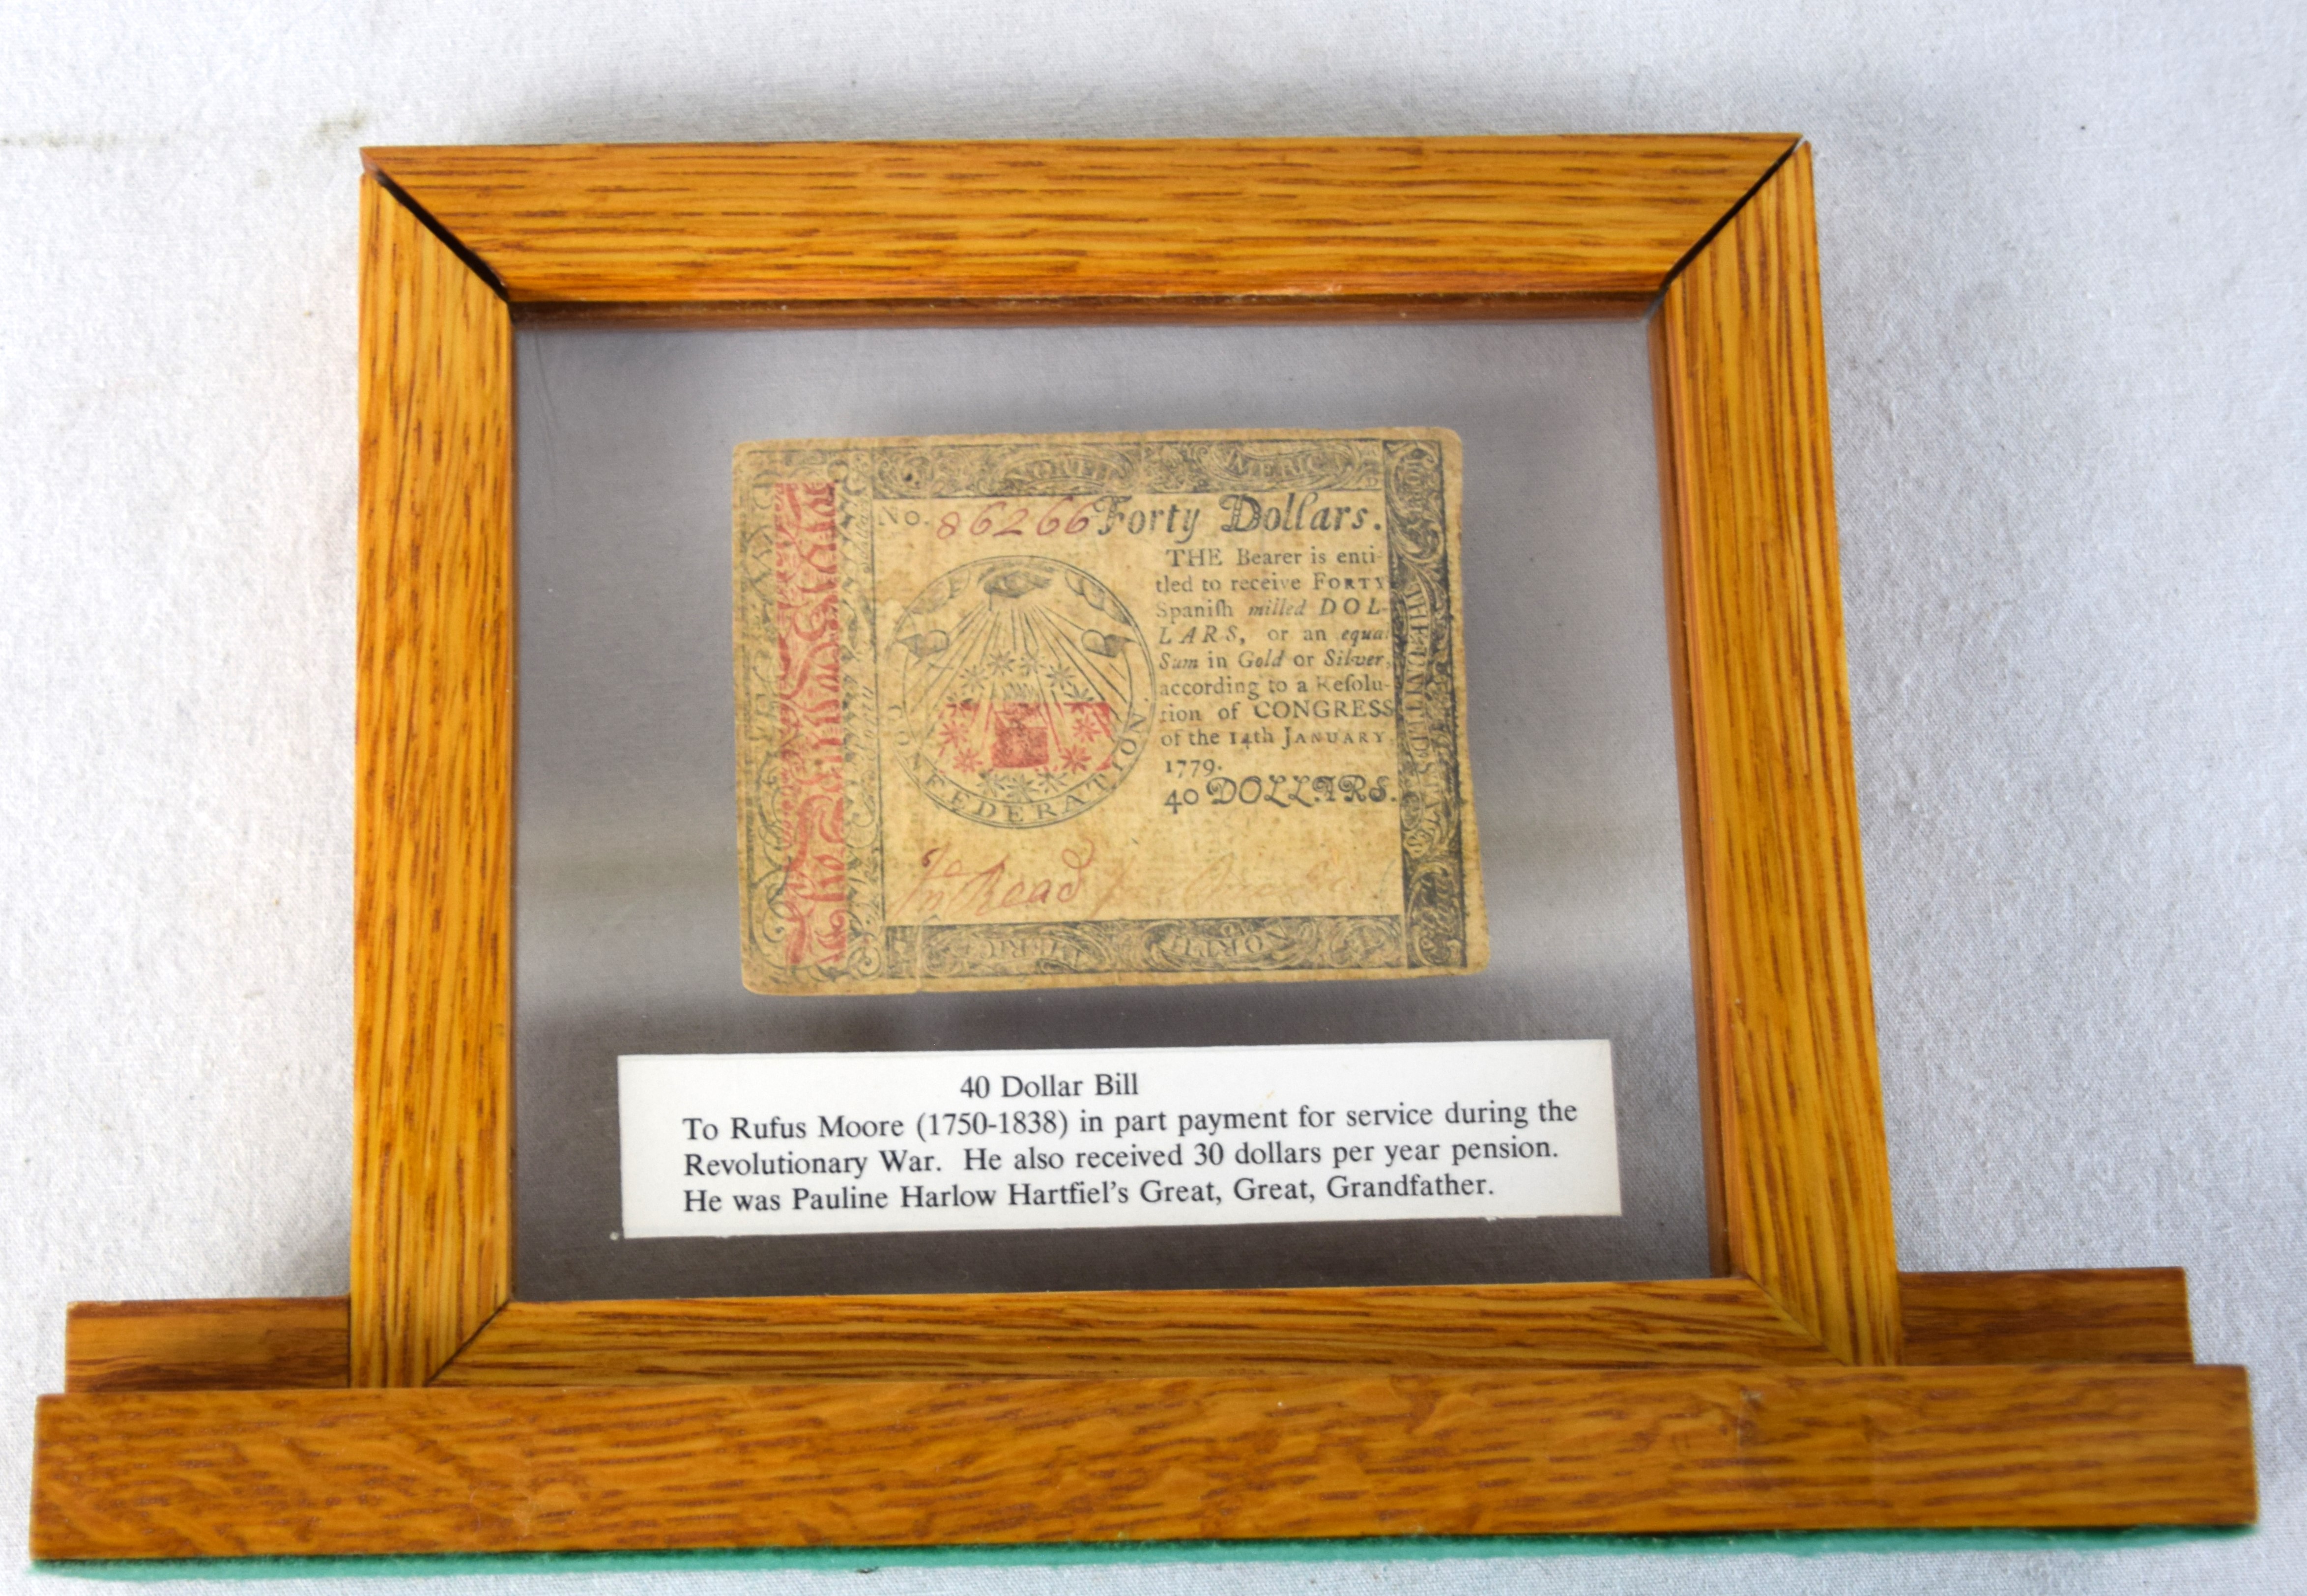 NORTH AMERICA
No. 86266 Forty Dollars.
THE Bearer is enti-
tled to receive FORTY
Spaniſh milled DOL-
LARS, or an equal
Sum in Gold or Silver,
according to a Reſolu-
tion of CONGRESS
of the 14th JANUARY,
1779.
40 DOLLARS.
CONFEDERATION
THE UNITED STATES
Jno Read
NORTH AMERICA
40 Dollar Bill
To Rufus Moore (1750-1838) in part payment for service during the
Revolutionary War. He also received 30 dollars per year pension.
He was Pauline Harlow Hartfiel's Great, Great, Grandfather.